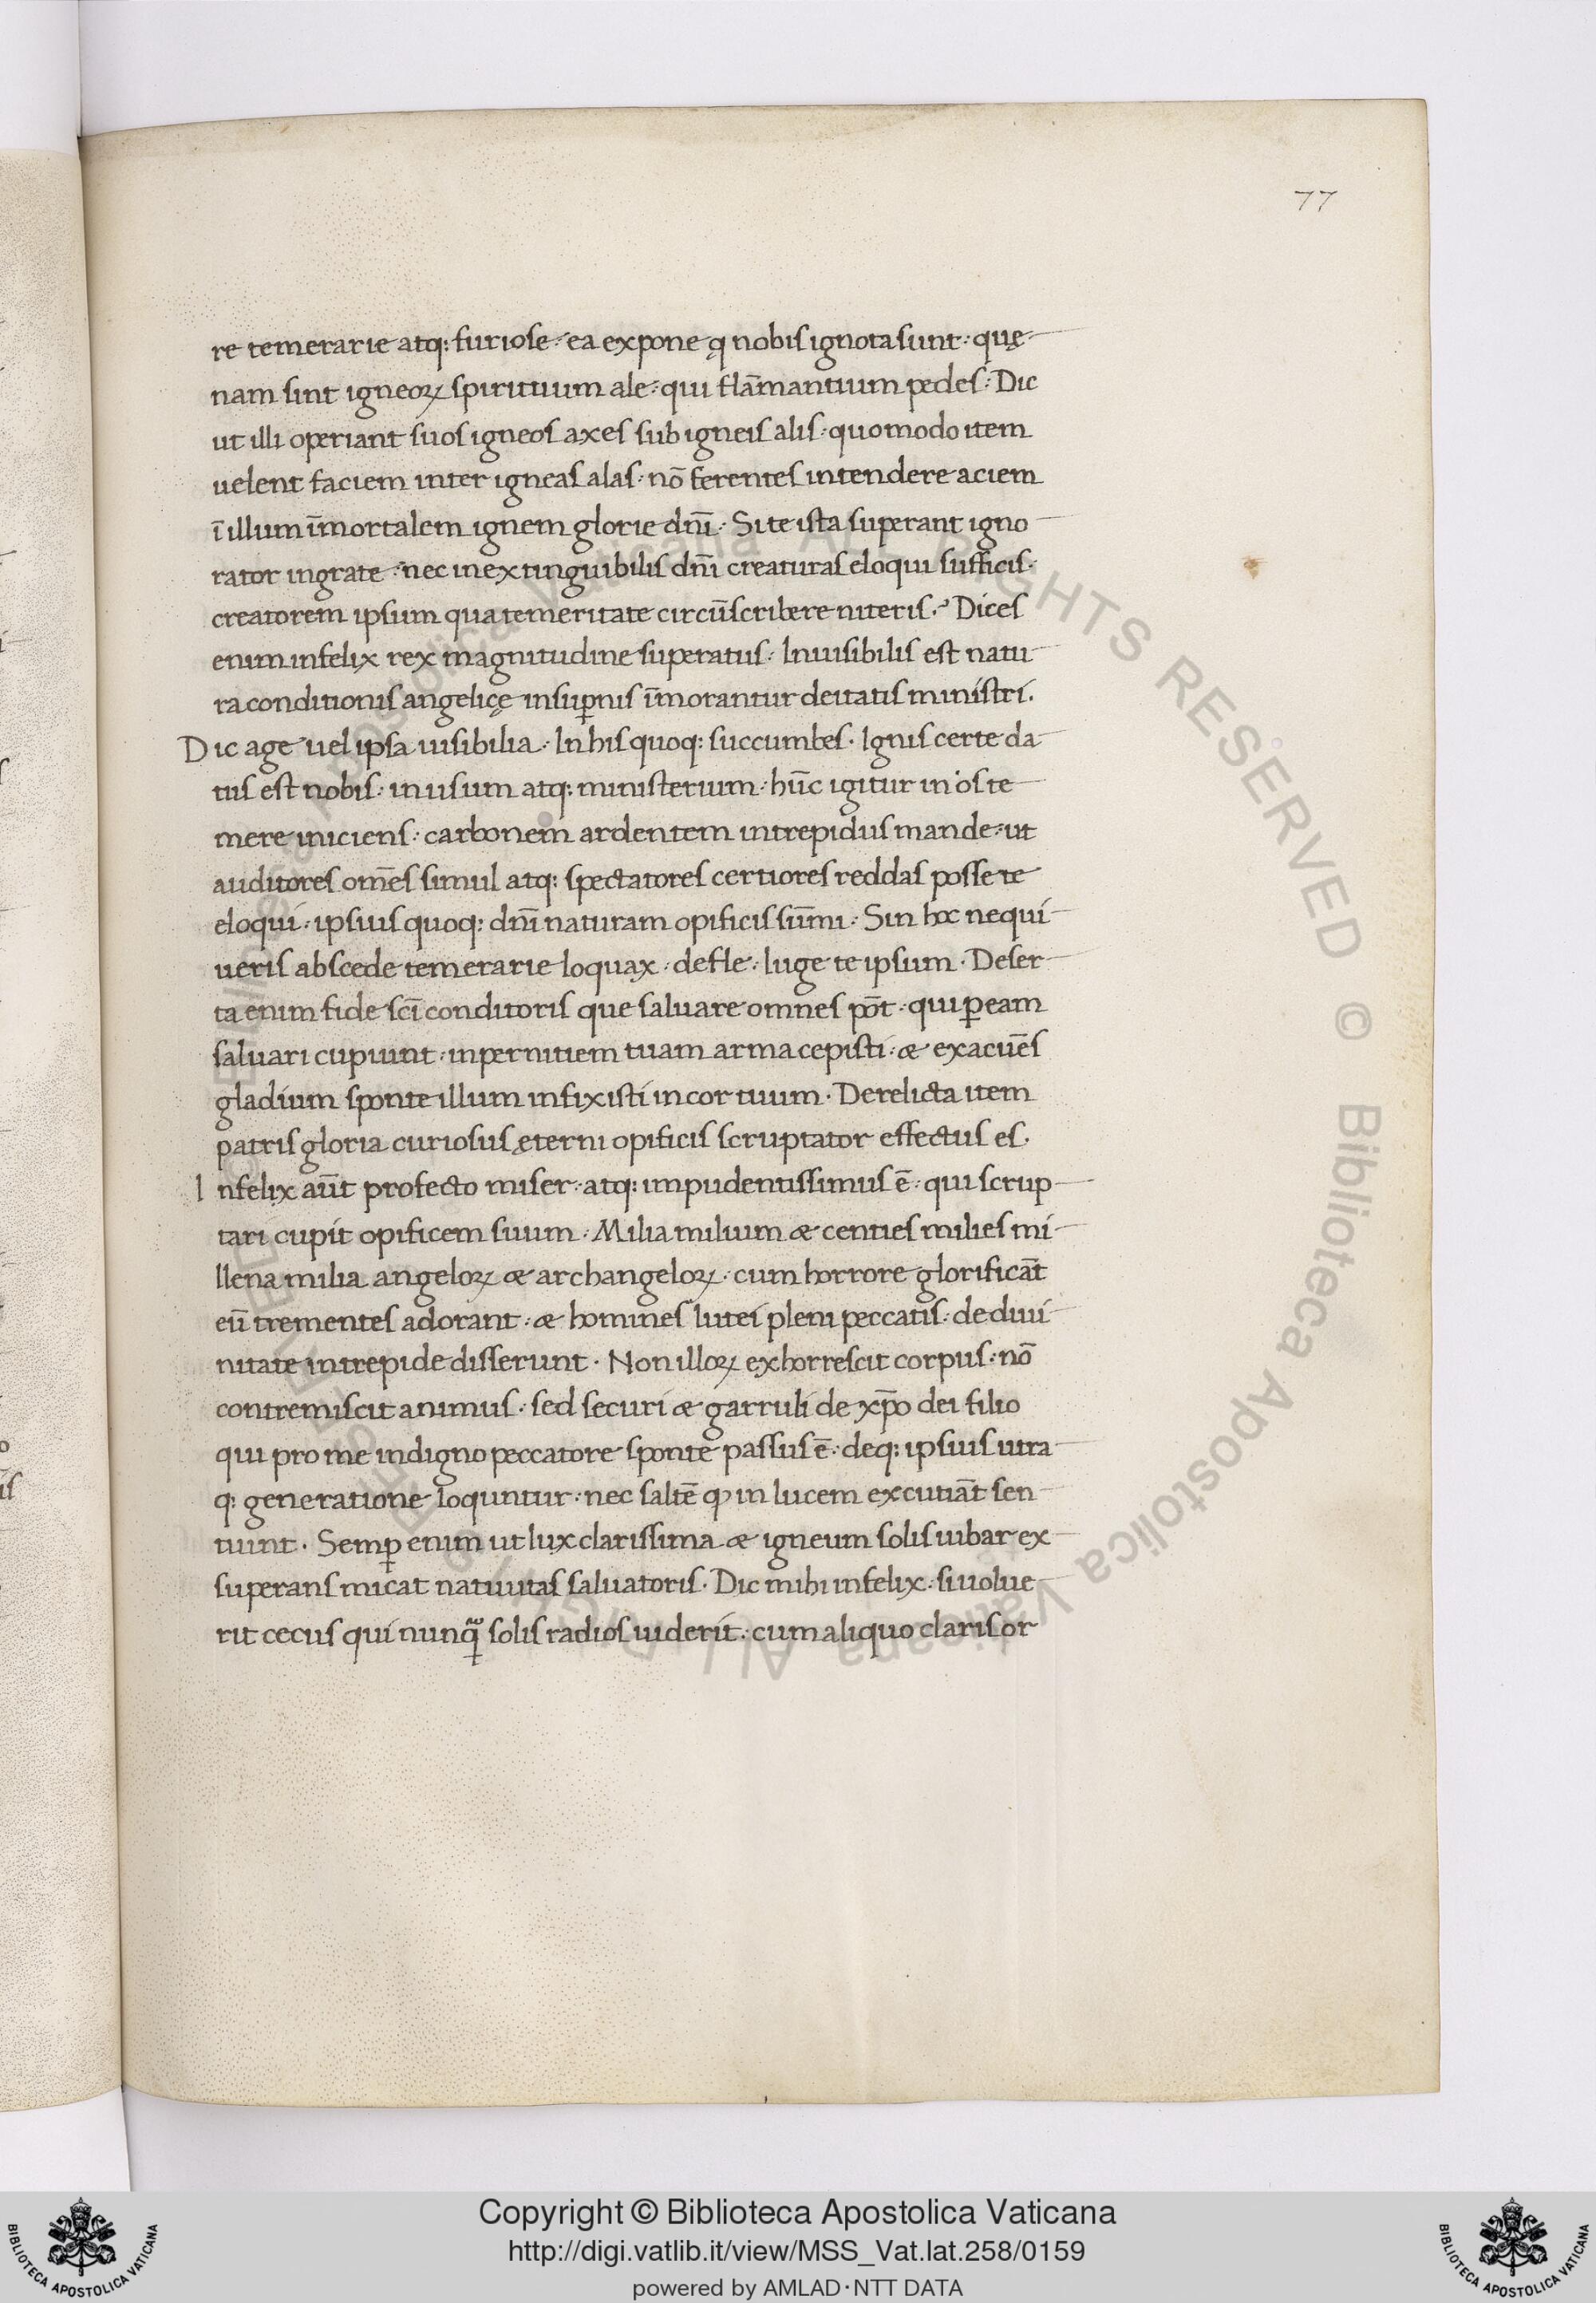 77
re temerarie atq: furiose: ea expone q̨ nobis ignota sunt: quę
nam sint igneoꝝ spirituum ale: qui flãmantium pedes: Dic
ut illi operiant suos igneos axes sub igneis alis: quomodo item
uelent faciem inter igneas alas: nō ferentes intendere aciem
ī illum īmortalem ignem glorie dnī: Si te ista superant igno
rator ingrate: nec inextinguibilis dnī creaturas eloqui sufficis:
creatorem ipsum qua temeritate circūscribere niteris? Dices
enim infelix rex magnitudine superatus: Inuisibilis est natu
ra conditionis angelicę in suꝑnis īmorantur deitatis ministri.
Dic age uel ipsa uisibilia: In his quoq: succumbes. Ignis certe da
tus est nobis: in usum atq: ministerium: hūc igitur in os te
mere iniciens: carbonem ardentem intrepidus mande: ut
auditores om̄es simul atq: spectatores certiores reddas posse te
eloqui: ipsius quoq: dnī naturam opificis sūmi: Sin hoc nequi
ueris abscede temerarie loquax: defle: luge te ipsum. Deser
ta enim fide scī conditoris que saluare omnes pōt: qui ꝑ eam
saluari cupiunt: in pernitiem tuam arma cepisti: æ exacuēs
gladium sponte illum infixisti in cor tuum. Derelicta item
patris gloria curiosus ęterni opificis scruptator effectus es.
Infelix aūt profecto miser: atq: impudentissimus ē: qui scrup
tari cupit opificem suum: Milia milium æ centies milies mi
llena milia angeloꝝ æ archangeloꝝ: cum horrore glorificāt
eū trementes adorant: æ homines lutei pleni peccatis: de diui
nitate intrepide disserunt. Non illoꝝ exhorrescit corpus: nō
contremiscit animus: sed securi æ garruli de xp̄o dei filio
qui pro me indigno peccatore sponte passus ē: deq: ipsius utra
q: generatione loquntur: nec saltē ꝙ in lucem excutiāt sen
tiunt. Semꝑ enim ut lux clarissima æ igneum solis iubar ex
superans micat natiuitas saluatoris. Dic mihi infelix: si uolue
rit cecus qui nunq̃ solis radios uiderit: cum aliquo claris or
Copyright © Biblioteca Apostolica Vaticana
http://digi.vatlib.it/view/MSS_Vat.lat.258/0159
powered by AMLAD·NTT DATA